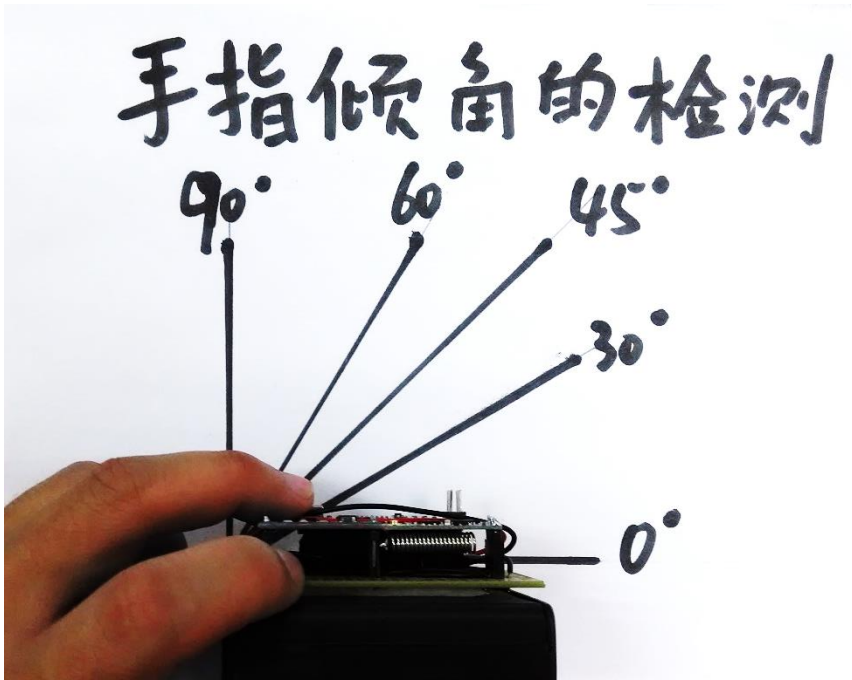 手指倾角的检测
90°
60°
45°
30°
0°